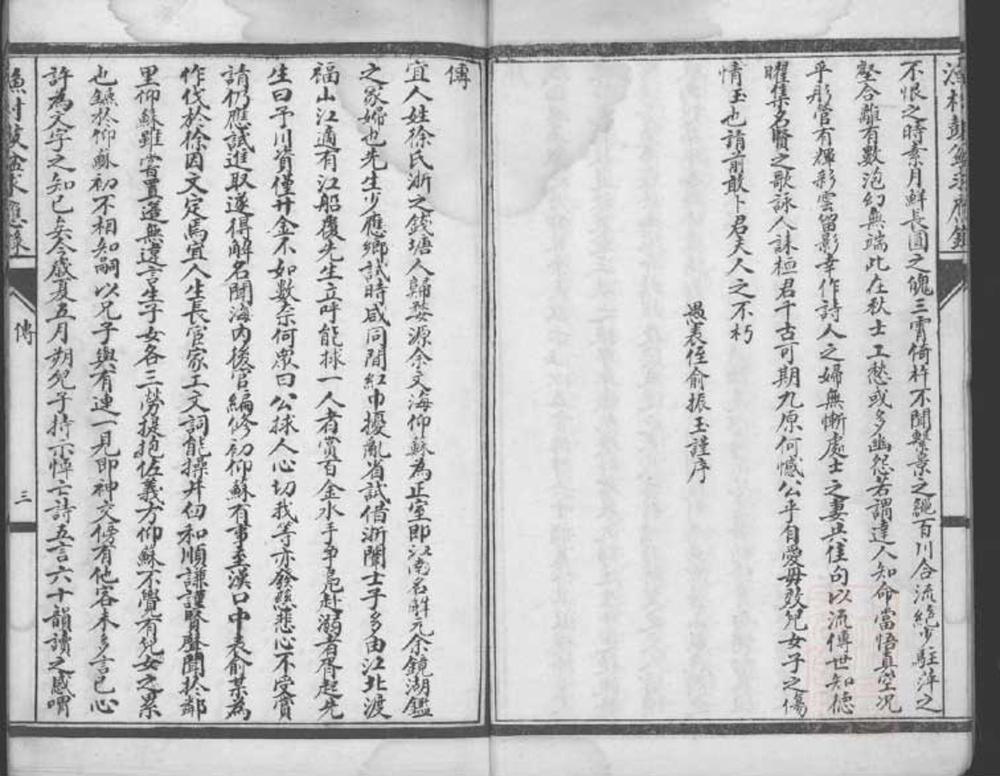 不恨之時素月鮮長圓之魄三霄倚杵不聞繫景之繩百川合流絕少駐萍之
壑合離有數泡幻無端此在秋士工愁或多幽怨若謂達人知命當悟真空況
乎彤管有輝彩雲留影幸作詩人之婦無慚處士之妻共佳句以流傳世知德
曜集名賢之歌詠人誄桓君千古可期九原何憾公乎自愛毋效兒女子之傷
情玉也請前敢卜君夫人之不朽
愚表侄俞振玉謹序
傳
宜人姓徐氏浙之錢塘人歸婺源余文海仰蘇為正室即江南名解元余鏡湖鑑
之冢婦也先生少應鄉試時咸同間紅巾擾亂省試借浙闈士子多由江北渡
福山江適有江船覆先生立呼能捄一人者賞百金水手爭鳧赴溺者胥起先
生曰予川資僅廿金不如數奈何眾曰公捄人心切我等亦發慈悲心不受賞
請仍應試進取遂得解名聞海內後官編修初仰蘇有事至漢口中表俞某為
作伐於徐因文定焉宜人生長宦家工文詞能操井臼和順謙謹賢聲聞於鄰
里仰蘇雖嘗置簉無違言生子女各三勞提抱佐義方仰蘇不覺有兒女之累
也鑣於仰蘇初不相知嗣以兄子與有連一見即神交傍有他客未多言已心
許為文字之知已矣今歲夏五月朔兒子持示悼亡詩五言六十韻讀之感喟
傳
三